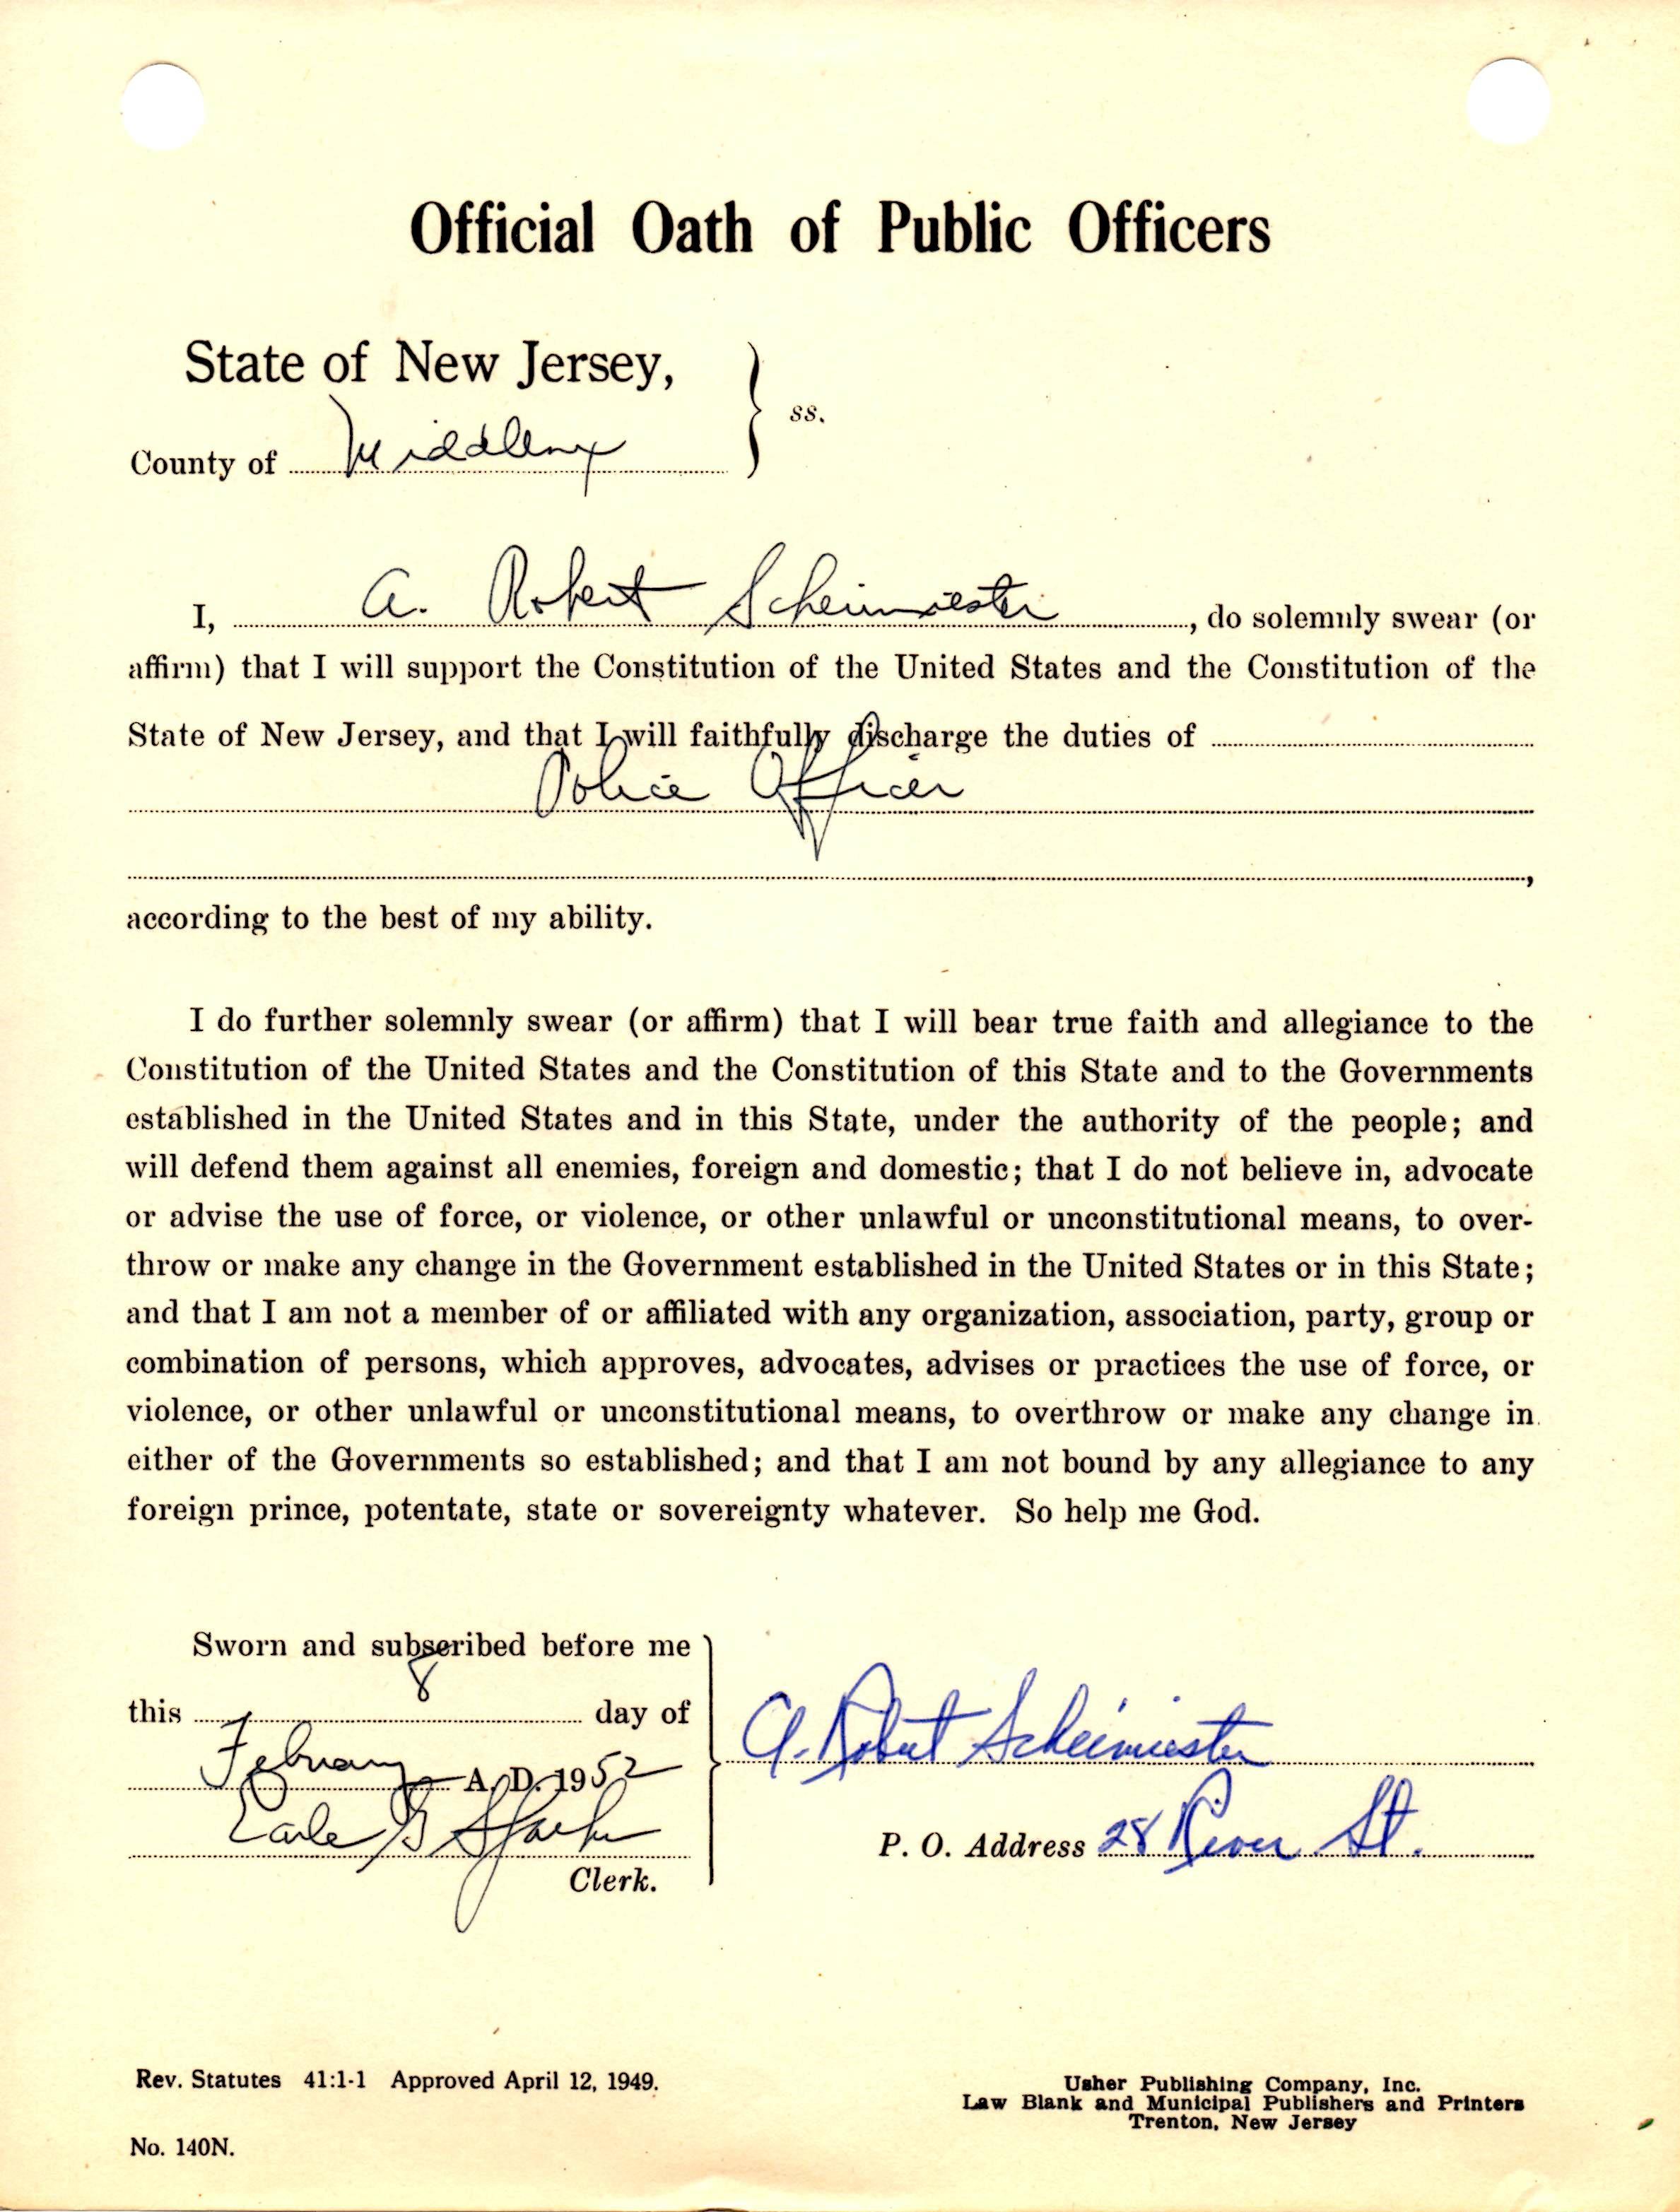 Official Oath of Public Officers
State of New Jersey,
ss.
County of Middlesex
I, A. Robert Scheimiester, do solemnly swear (or
affirm) that I will support the Constitution of the United States and the Constitution of the
State of New Jersey, and that I will faithfully discharge the duties of
Police Officer
,
according to the best of my ability.
I do further solemnly swear (or affirm) that I will bear true faith and allegiance to the
Constitution of the United States and the Constitution of this State and to the Governments
established in the United States and in this State, under the authority of the people; and
will defend them against all enemies, foreign and domestic; that I do not believe in, advocate
or advise the use of force, or violence, or other unlawful or unconstitutional means, to over-
throw or make any change in the Government established in the United States or in this State;
and that I am not a member of or affiliated with any organization, association, party, group or
combination of persons, which approves, advocates, advises or practices the use of force, or
violence, or other unlawful or unconstitutional means, to overthrow or make any change in
either of the Governments so established; and that I am not bound by any allegiance to any
foreign prince, potentate, state or sovereignty whatever. So help me God.
Sworn and subscribed before me
this 8 day of
February A. D. 1952
Earle B
Clerk.
A. Robert Scheimiester
P. O. Address 28 River St.
Rev. Statutes 41:1-1 Approved April 12, 1949.
No. 140N.
Usher Publishing Company, Inc.
Law Blank and Municipal Publishers and Printers
Trenton, New Jersey